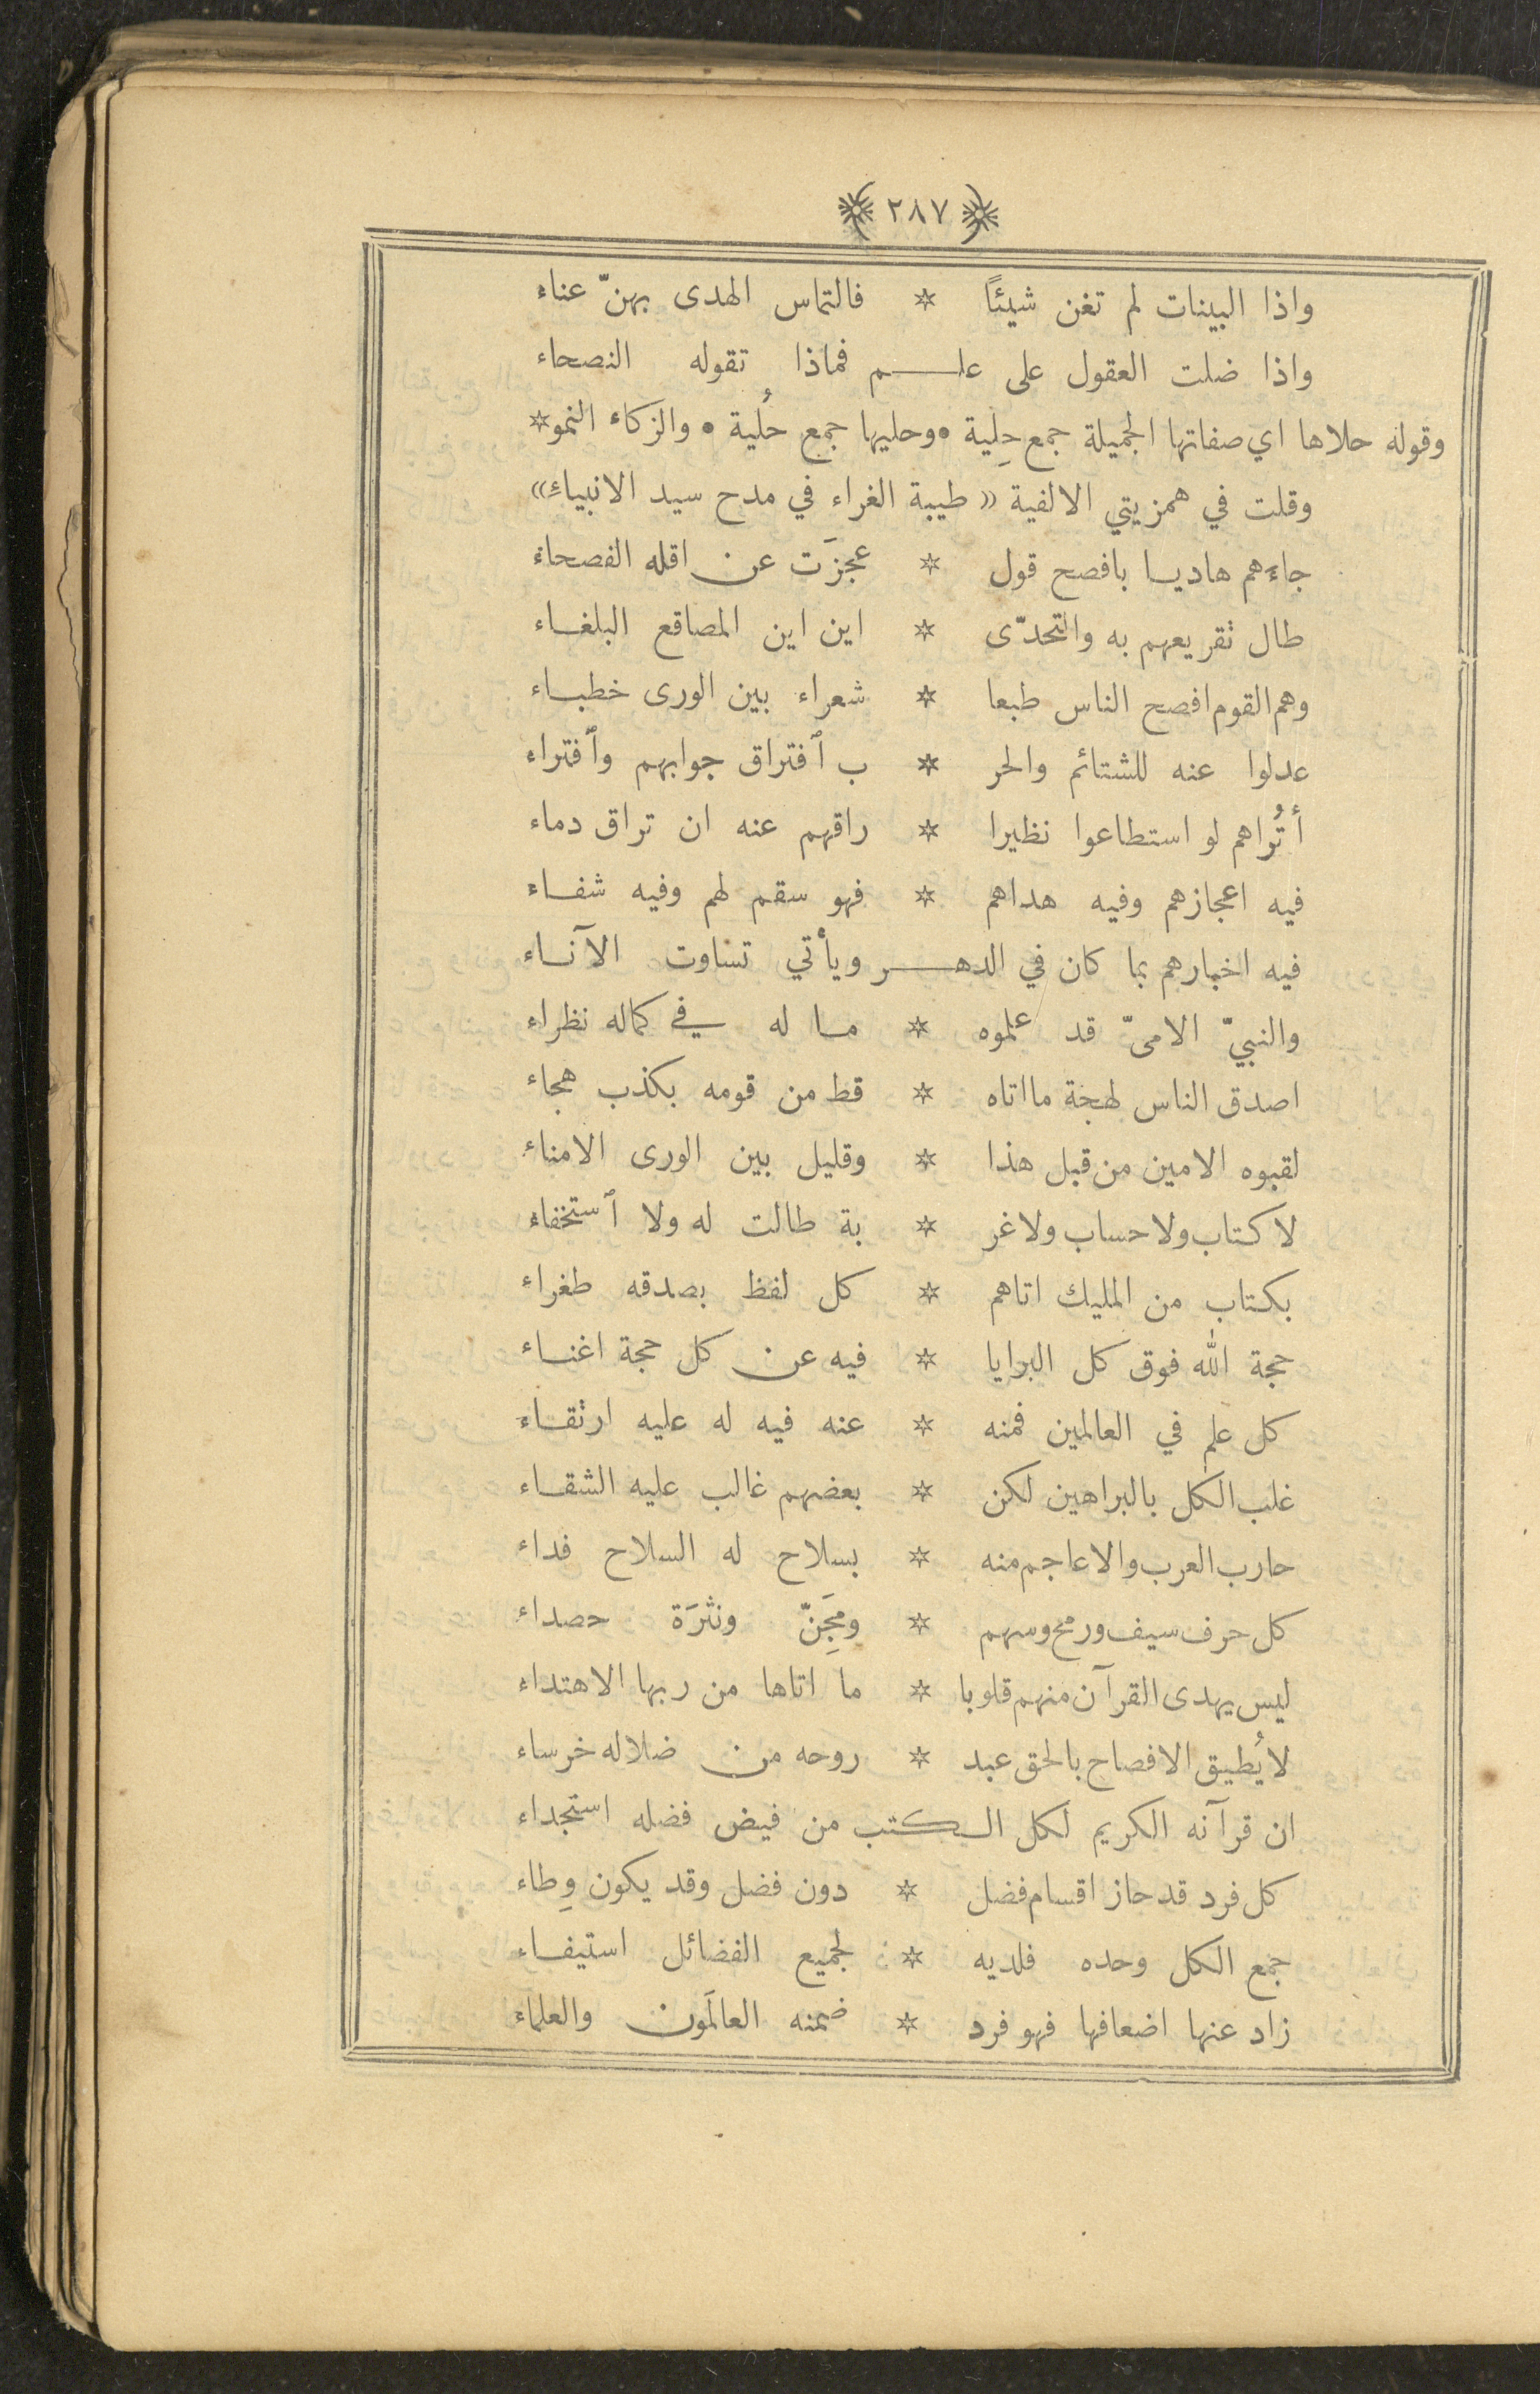 ٢٨٧
واذا البينات لم تغن شيئاً * فالتماس الهدى بهنّ عناء
واذا ضلت العقول على علم فماذا تقوله النصحاء
وقوله حلاها اي صفاتها الجميلة جمع حِلية • وحليها جمع حُلية • والزكاء النمو *
وقلت في همزيتي الالفية « طيبة الغراء في مدح سيد الانبياء »
جاءهم هاديا بافصح قول * عجزَت عن اقله الفصحاء
طال تقريعهم به والتحدّى * اين اين المصاقع البلغاء
وهم القوم افصح الناس طبعا * شعراء بين الورى خطباء
عدلوا عنه للشتائم والحر * ب ٱفتراق جوابهم وٱفتراء
أتُراهم لو استطاعوا نظيرا * راقهم عنه ان تراق دماء
فيه اعجازهم وفيه هداهم * فهو سقم لهم وفيه شفاء
فيه اخبارهم بما كان في الدهر ويأتي تساوت الآناء
والنبيّ الامىّ قد علموه * ما له في كماله نظراء
اصدق الناس لهجة ما اتاه * قط من قومه بكذب هجاء
لقبوه الامين من قبل هذا * وقليل بين الورى الامناء
لا كتاب ولا حساب ولا غر * بة طالت له ولا ٱستخفاء
بكتاب من المليك اتاهم * كل لفظ بصدقه طغراء
حجة الله فوق كل البرايا * فيه عن كل حجة اغناء
كل علم في العالمين فمنه * عنه فيه له عليه ارتقاء
غلب الكل بالبراهين لكن * بعضهم غالب عليه الشقاء
حارب العرب والاعاجم منه * بسلاح له السلاح فداء
كل حرف سيف ورمح وسهم * ومِجَنّ ونثرَة حصداء
ليس يهدى القرآن منهم قلوبا * ما اتاها من ربها الاهتداء
لا يُطيق الافصاح بالحق عبد * روحه من ضلاله خرساء
ان قرآنه الكريم لكل الكتب من فيض فضله استجداء
كل فرد قد حاز اقسام فضل * دون فضل وقد يكون وِطاء
جمع الكل وحده فلديه * لجميع الفضائل استيفاء
زاد عنها اضعافها فهو فرد * ضمنه العالَمون والعلماء